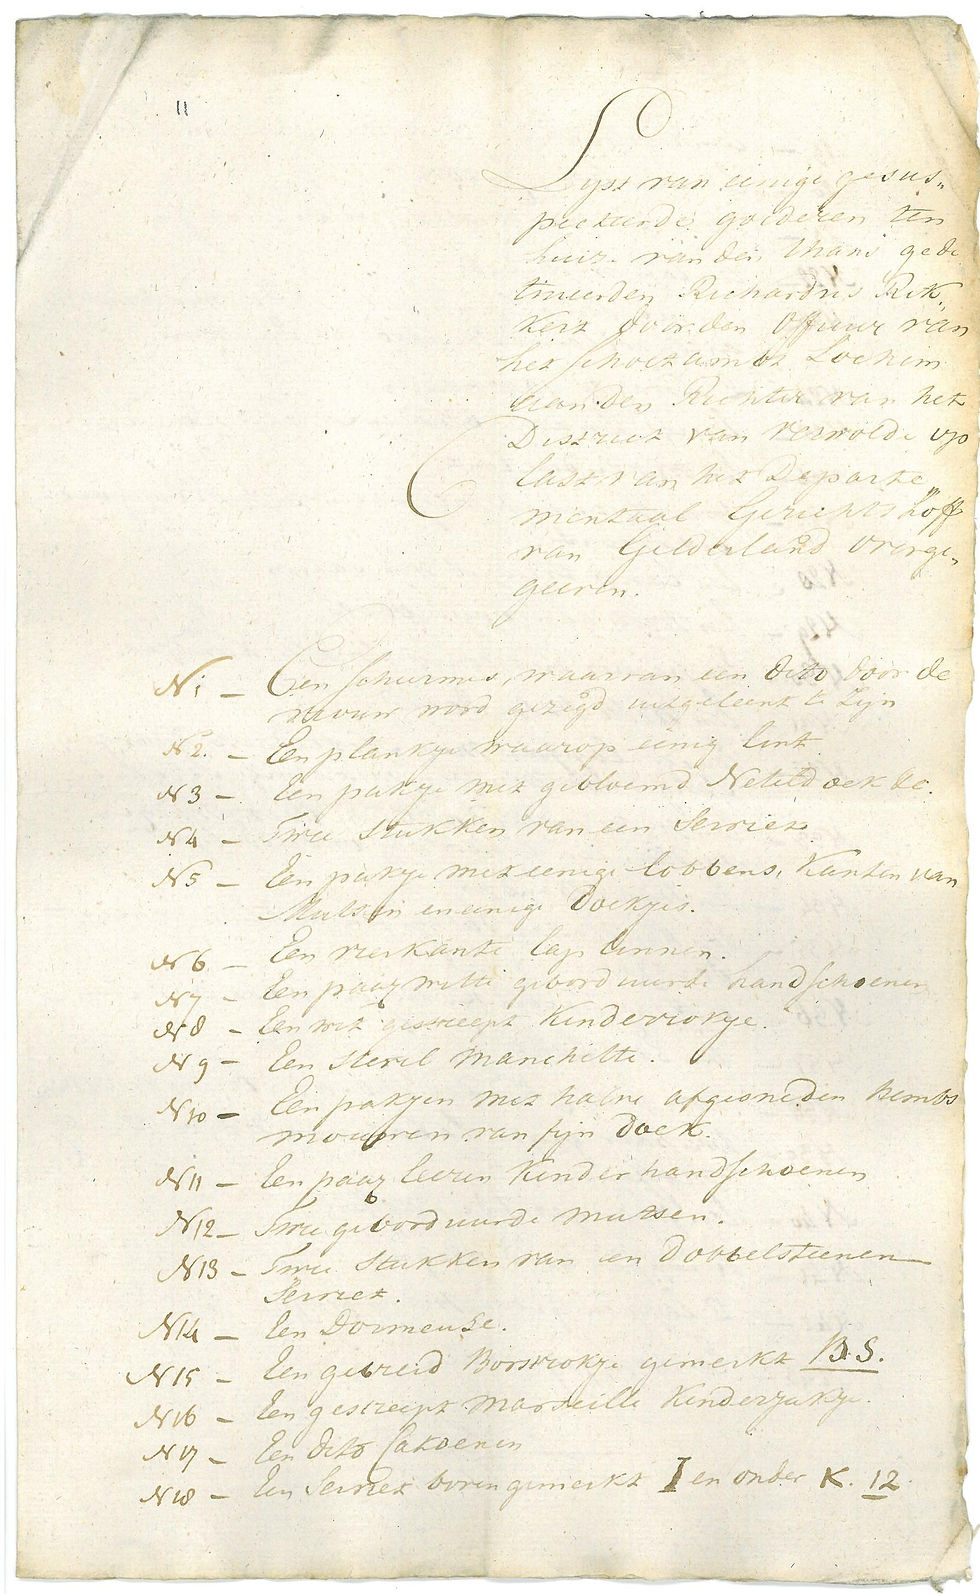 11
Lyst van eenige gesus„
pecteerde goederen ten
huize van den thans gede
tineerden Richardus Rek„
kers door den Officier van
het Scholtambt Lochem
aan den Richter van het
District van Verwolde op
last van het Departe
mentaal Gerichts Hoff
van Gelderland overge„
geeven.
N1 — Een , waarvan een dito door de
vrouw word gezegd uitgeleent te zijn
N2. — Een plankje waarop eenig lint
N3 — Een pakje met gebloemd Neteldoek &c.
N4 — Twee stukken van een Serviet
N5 — Een pakje met eenige lobbens, Kanten van
Mutsen en eenige Doekjes.
N6 — Een vierkante lap linnen.
N7 — Een paar witte geborduurde handschoenen
N8 — Een wit gestreept Kinderrokje.
N9 — Een stevel manchette.
N10 — Een pakjen met halve afgesneden hembs
mouwen van fijn Doek.
N11 — Een paar leeren Kinder handschoenen
N12 — Twee geborduurde mutsen.
N13 — Twee stukken van een Dobbelsteenen
Serviet.
N14 — Een Dormeuse.
N15 — Een gebreid Borstrokje gemerkt B.S.
N16 — Een gestreept Marseille Kinderjakje.
N17 — Een dito Catoenen
N18 — Een Serviet boven gemerkt I en onder K. 12.